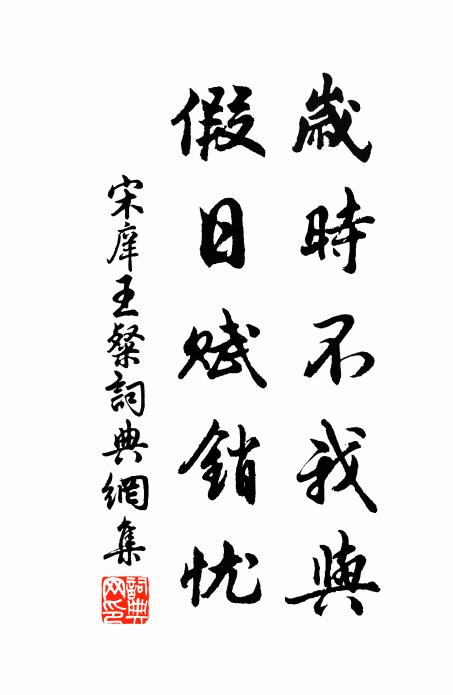 歲時不我與
假日賦銷忧
宋庠王粲詞典網集
詞典网印